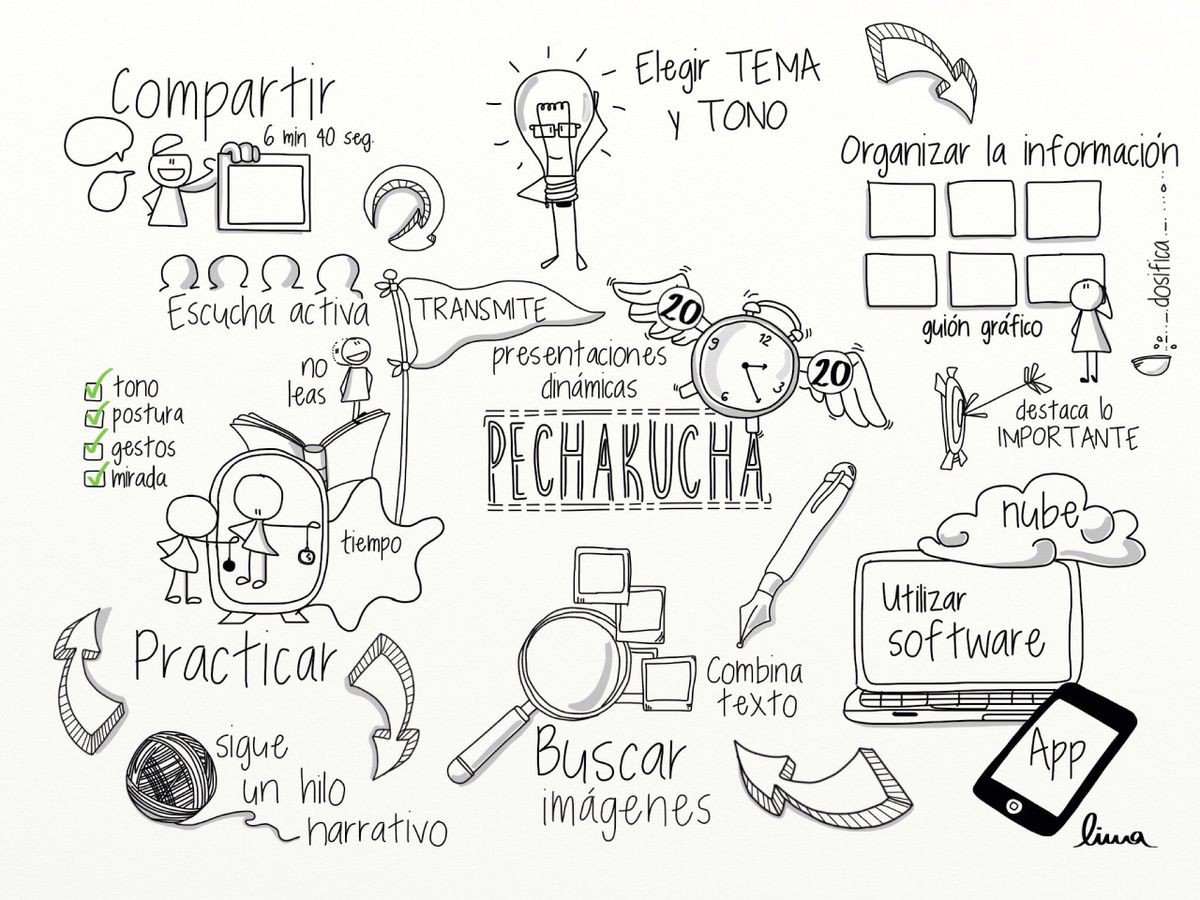 Compartir
6 min 40 seg.
Elegir TEMA
y TONO
Organizar la información
dosifica
guión gráfico
Escucha activa
TRANSMITE
no
leas
presentaciones
dinámicas
20
9
12
3
6
20
PECHAKUCHA
destaca lo
IMPORTANTE
tono
postura
gestos
mirada
tiempo
nube
Utilizar
software
App
Practicar
Combina
texto
Buscar
imágenes
sigue
un hilo
narrativo
lima